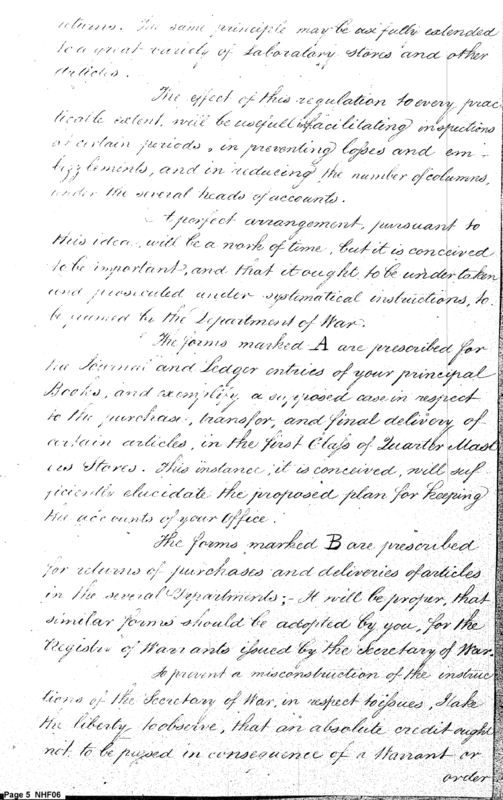 returns. The same principle may be usefully extended
to a great variety of Laboratory Stores and other
articles.
The effect of this regulation to every prac-
ticable extent, will be usefull in facilitating inspections
at certain periods, in preventing losses and em-
bezzlements, and in reducing the number of columns,
under the several heads of accounts.
A perfect arrangement, pursuant to
this idea, will be a work of time, but it is conceived
to be important, and that it ought to be undertaken
and prosecuted under systematical instructions, to
be framed by the Department of War.
The forms marked A are prescribed for
the Journal and Ledger entries of your principal
Books, and exemplify a supposed case in respect
to the purchase, transfer, and final delivery of
certain articles, in the first Class of Quarter Mast
ers Stores. This instance, it is conceived, will suf
ficiently elucidate the proposed plan for keeping
the accounts of your Office.
The forms marked B are prescribed
for returns of purchases and deliveries of articles
in the several Departments;- It will be proper, that
similar forms should be adopted by you, for the
Register of Warrants issued by the Secretary of War.
To prevent a misconstruction of the instruc
tions of the Secretary of War, in respect to issues, I take
the liberty to observe, that an absolute credit ought
not to be passed in consequence of a Warrant or
order
Page 5 NHF06